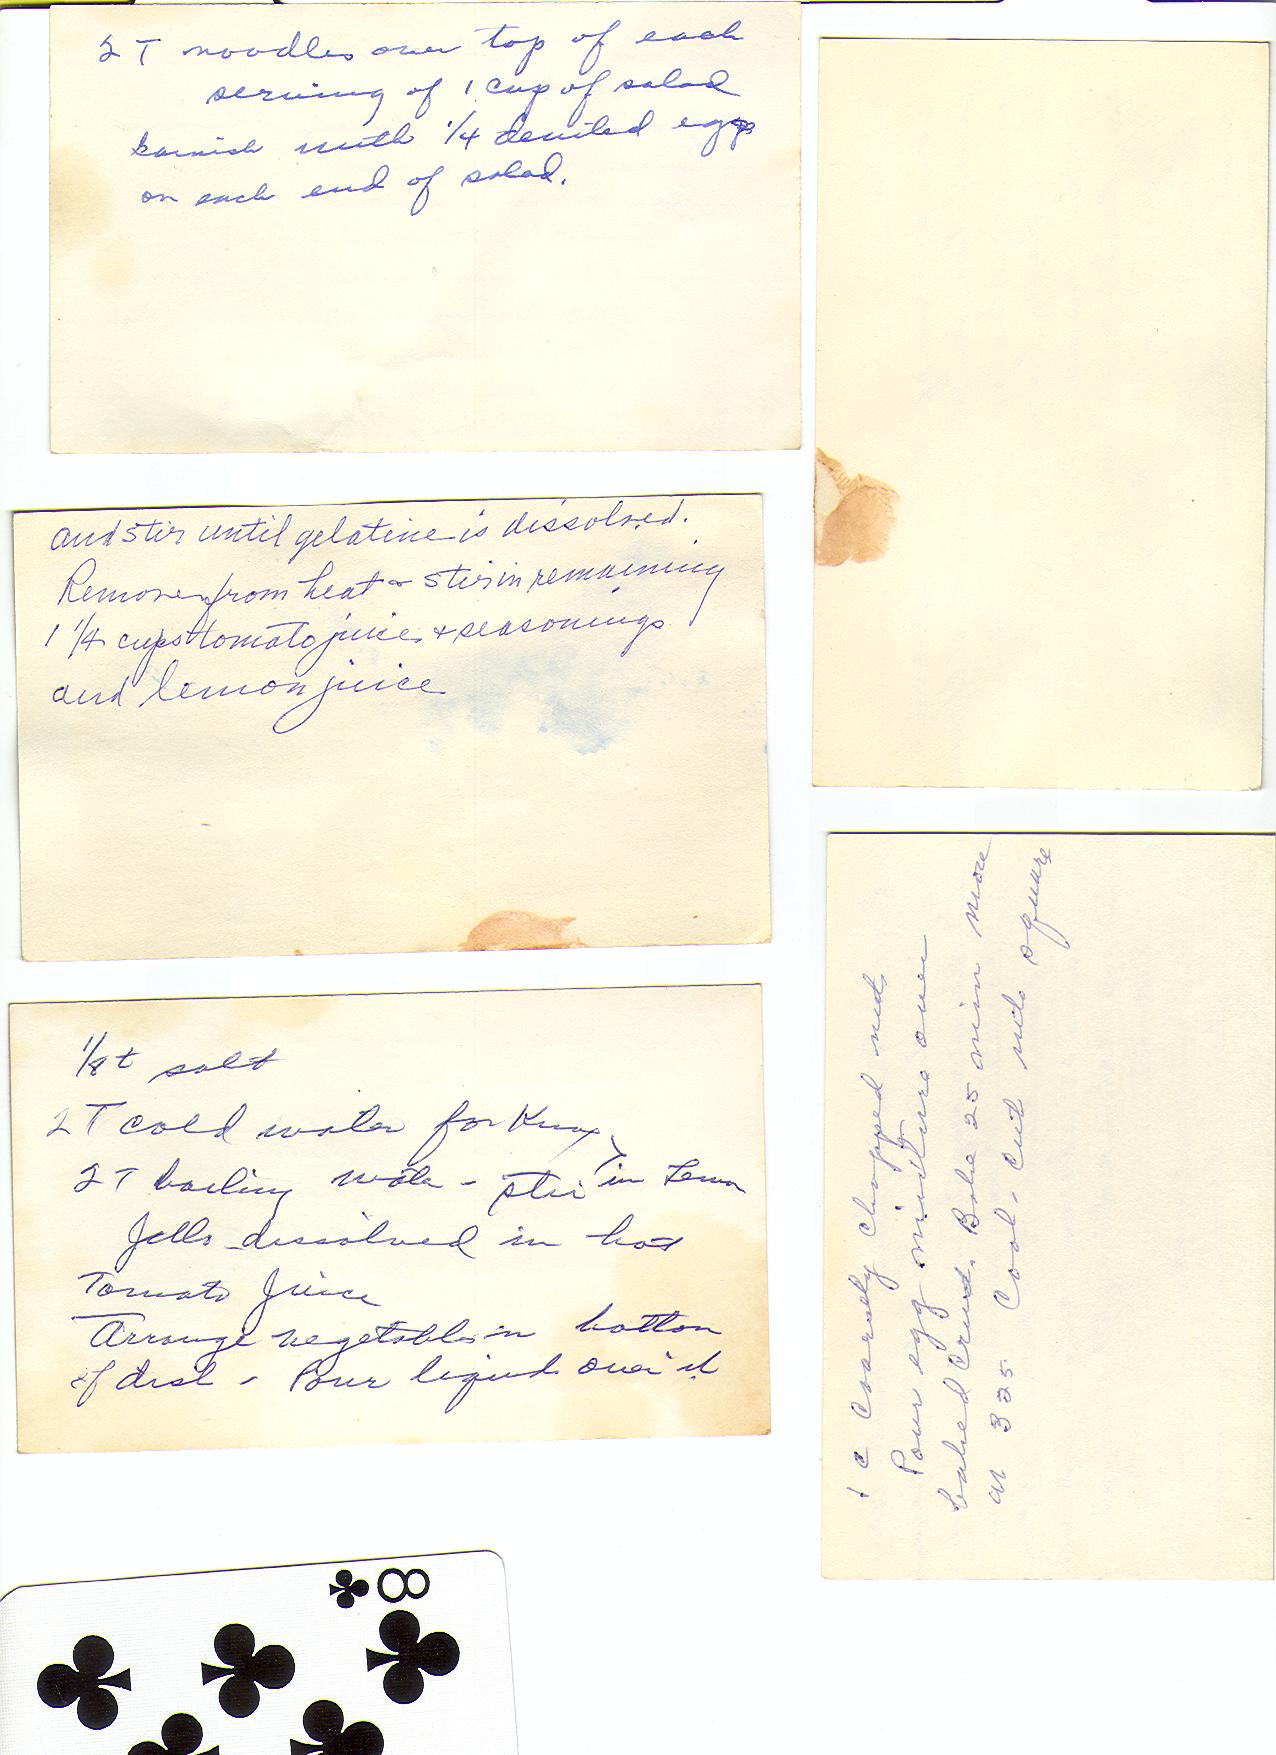 2 T noodles over top of each
serving of 1 cup of salad
Garnish with 1/4 deviled egg
on each end of salad.
and stir until gelatine is dissolved.
Remove from heat & stir in remaining
1 1/4 cups tomato juice & seasonings
and lemon juice
1/8 t salt
2 T cold water for Knox
2 T boiling water - stir in Lemon
Jello dissolved in hot
Tomato Juice
Arrange vegetables in bottom
of dish - Pour liquid over it
1 c coarsely chopped nuts
Pour egg mixture over
baked crust. Bake 25 min more
at 325 Cool. Cut into square
8